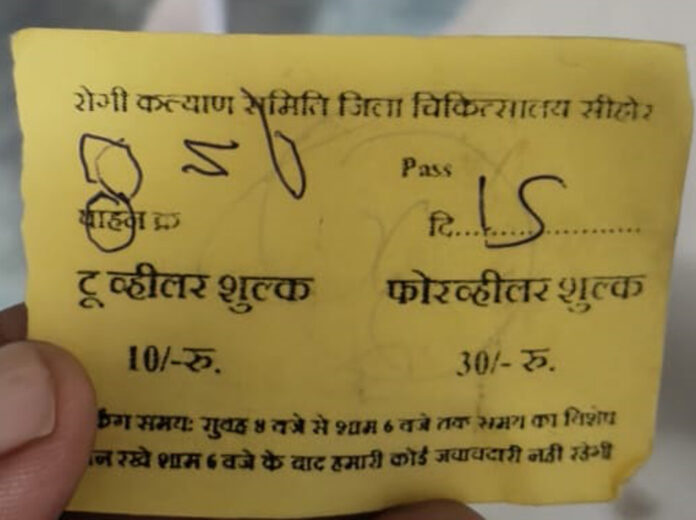 रोगी कल्याण समिति जिला चिकित्सालय सीहोर
Pass
वाहन क्र
दि.. 15
टू व्हीलर शुल्क फोरव्हीलर शुल्क
10/-रु. 30/- रु.
समयः सुवह 8 वजे से शाम 6 वजे तक समय का विशेष
रखे शाम 6 वजे के वाद हमारी कोई जवावदारी नही रहेगी